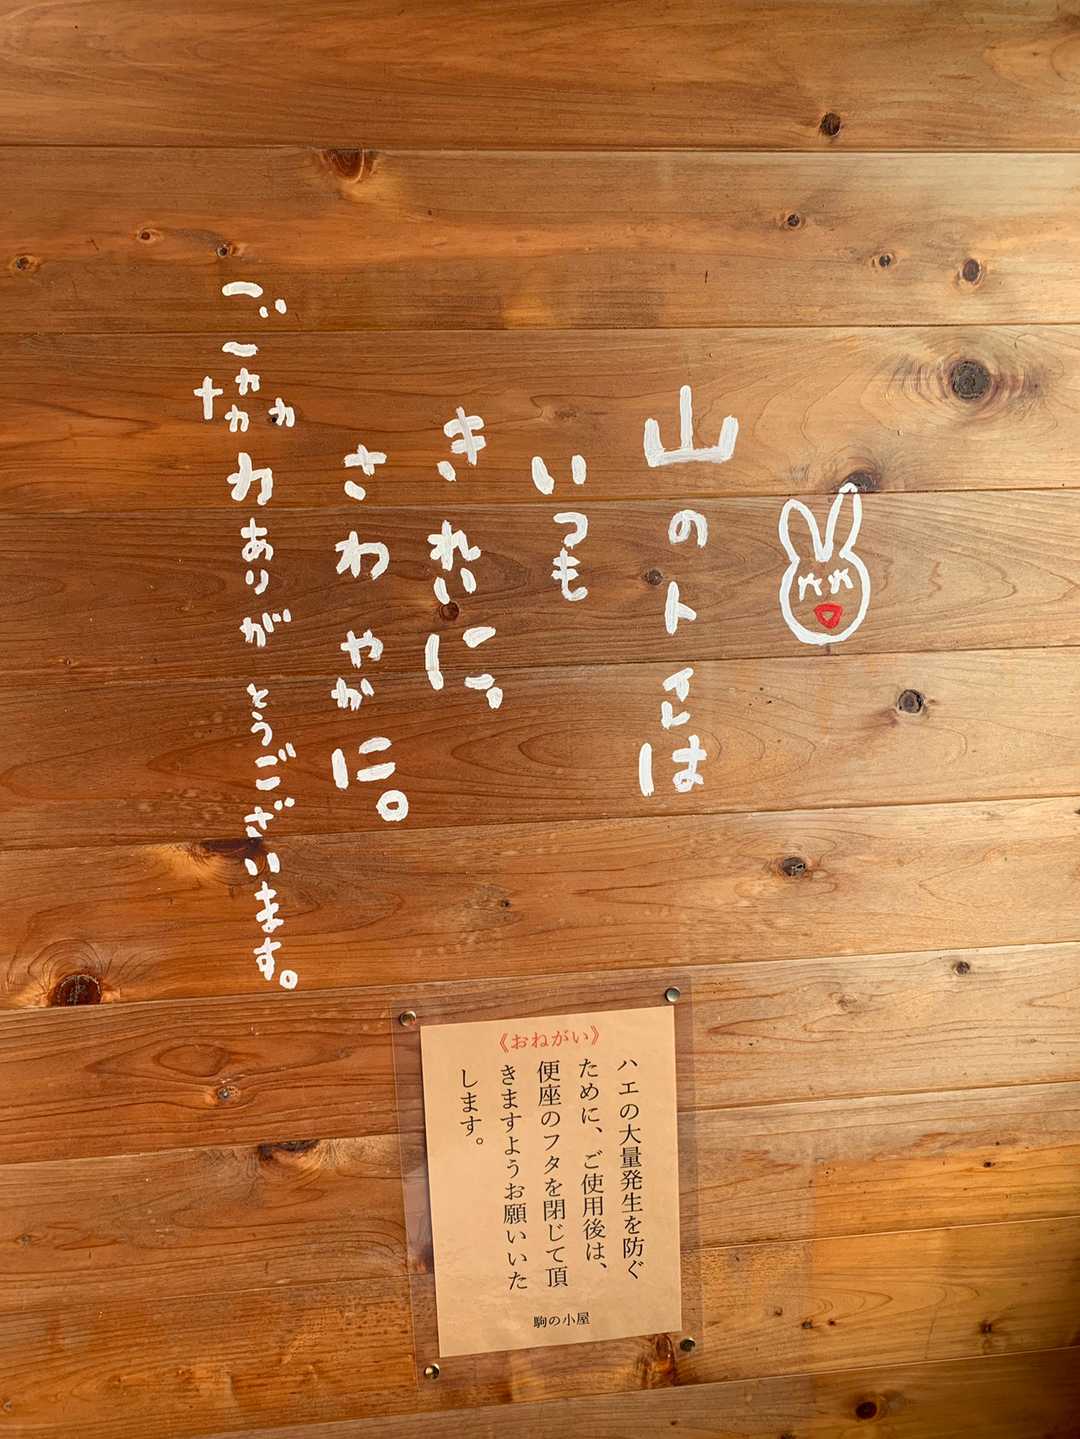 山のトイレは
いつも
きれいに、
さわやかに。
ご協力ありがとうございます。
《おねがい》
ハエの大量発生を防ぐ
ために、ご使用後は、
便座のフタを閉じて頂
きますようお願いいた
します。
駒の小屋